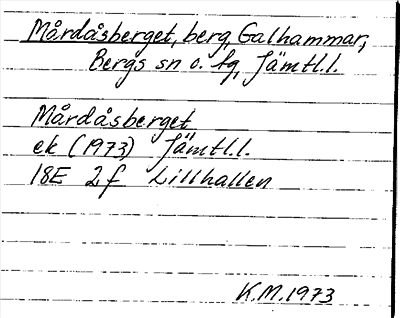 Mårdåsberget, berg, Galhammar,
Bergs sn o. fg, Jämtl.l.
Mårdåsberget
ek (1973) Jämtl.l.
18E 2f Lillhallen
K.M. 1973